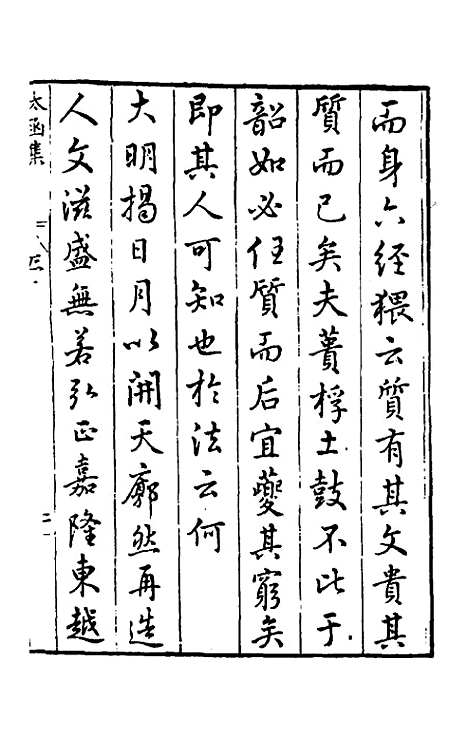 而身六經猥云質有其文貴其
質而已矣夫蕢桴土鼓不比于
韶如必任質而后宜夔其窮矣
即其人可知也於法云何
大明揭日月以開天廓然再造
人文滋盛無若弘正嘉隆東越
太函集